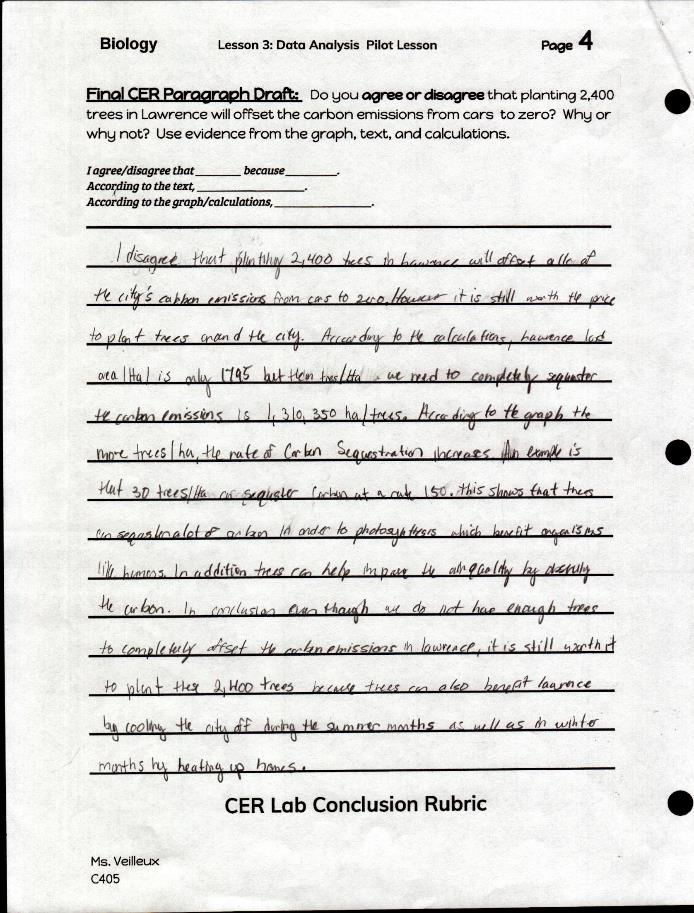 Biology
Lesson 3: Data Analysis Pilot Lesson
Page 4
Final CER Paragraph Draft: Do you agree or disagree that planting 2,400
trees in Lawrence will offset the carbon emissions from cars to zero? Why or
why not? Use evidence from the graph, text, and calculations.
I agree/disagree that _______ because ________.
According to the text, _________________.
According to the graph/calculations, _______________.
I disagree that planting 2,400 trees in Lawrence will offset all of
the city's carbon emissions from cars to zero. However it is still worth the price
to plant trees around the city. According to the calculations, Lawrence land
area (Ha) is only 1795 but then trees/Ha we need to completely sequester
the carbon emissions is 1,310,350 ha/trees. According to the graph the
more trees/ha, the rate of Carbon Sequestration increases. An example is
that 30 trees/Ha can sequester Carbon at a rate 150. This shows that trees
can sequester a lot of carbon in order to photosynthesis which benefit organisms
like humans. In addition trees can help the air quality by
the carbon. In conclusion even though we do not have enough trees
to completely offset the carbon emissions in lawrence, it is still worth it
to plant these 2,400 trees because trees can also benefit lawrence
by cooling the city off during the summer months as well as in winter
months by heating up homes.
CER Lab Conclusion Rubric
Ms. Veilleux
C405